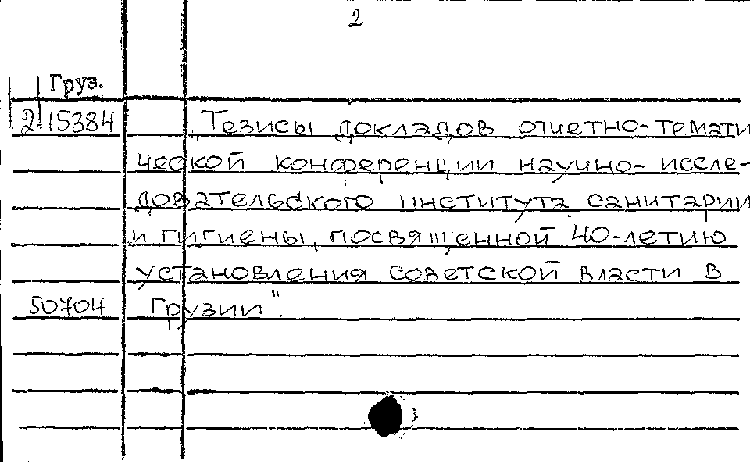 2
Груз.
2 15384 Тезисы докладов отчетно-темати
ческой конференции научно-иссле-
довательского института санитарии
и гигиены, посвященной 40-летию
установления советской власти в
50704 Грузии".